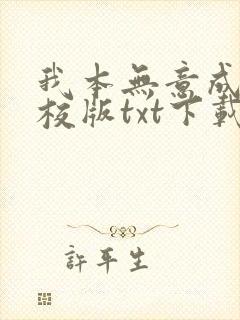 我本無意成
校版txt下載
許平生